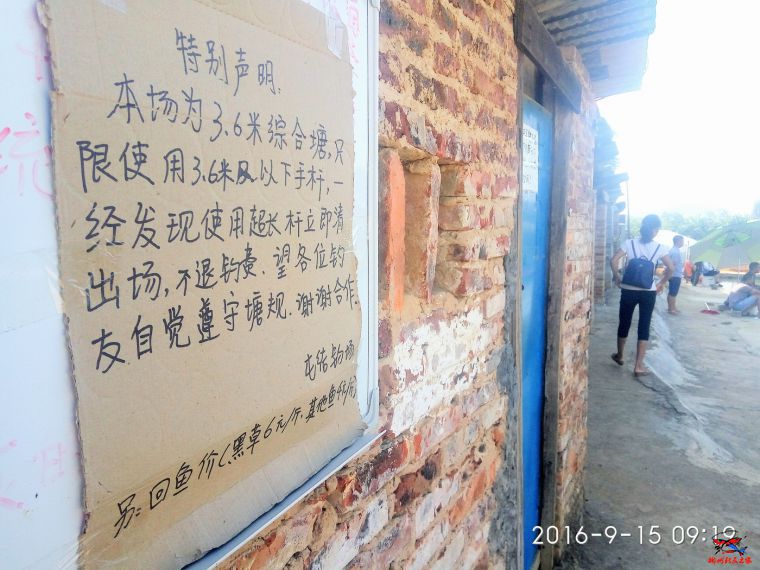 特别声明:
本场为3.6米综合塘,只
限使用3.6米及以下手杆,一
经发现使用超长杆立即清
出场,不退钓费.望各位钓
友自觉遵守塘规.谢谢合作.
另:回鱼价(黑草6元/斤.其他鱼4元/斤)
2016-9-15 09:19